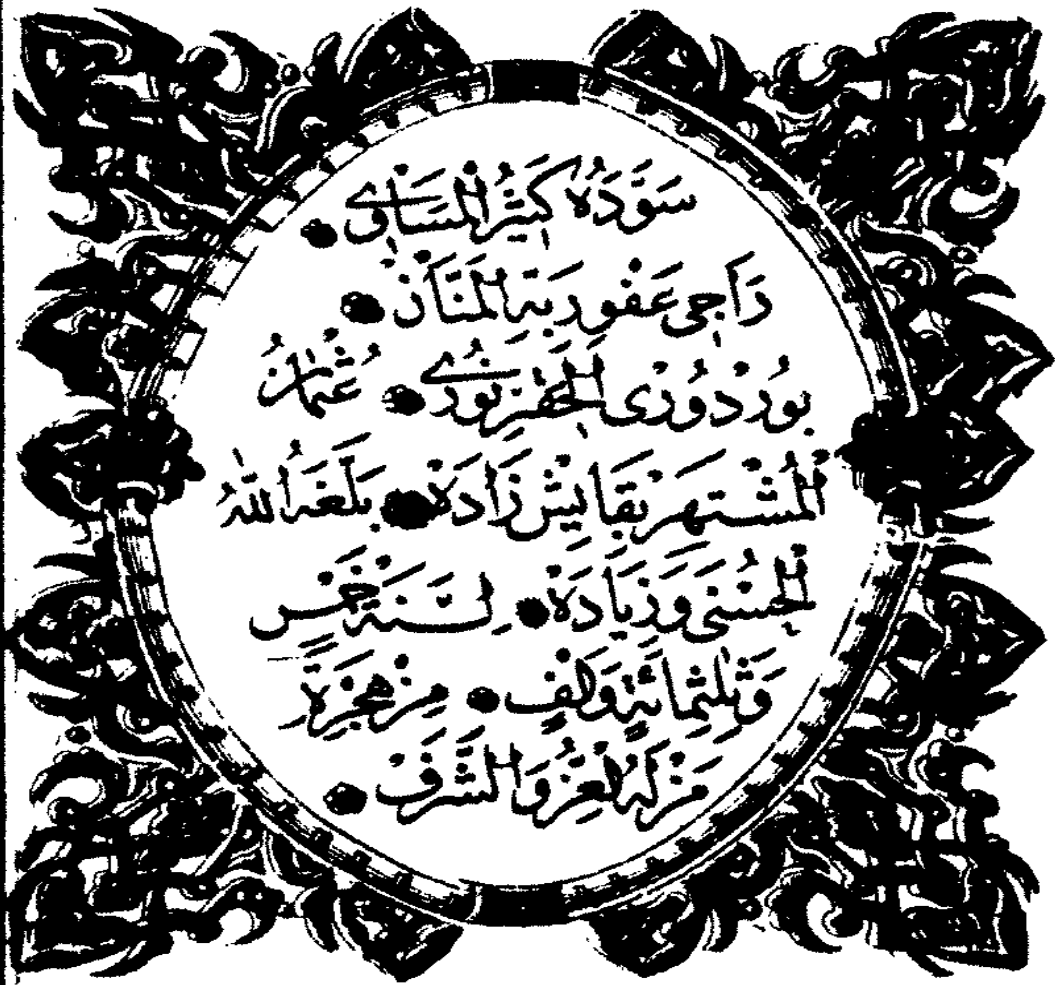 سَوَّدَهُ كَثِيرُ الْمَسَاوِي
رَاجِي عَفْوِ رَبِّهِ الْمَنَّانْ
بُورْدُورِي الْحَافِظْ نُورِي عُثْمَانُ
الْمُشْتَهِرْ بِقَايِشْ زَادَهْ بَلَّغَهُ اللهُ
الْحُسْنَى وَزِيَادَةْ لِسَنَةِ خَمْسٍ
وَثَلٰثِمِائَةٍ وَاَلْفٍ مِنْ هِجْرَةِ
مَنْ لَهُ الْعِزُّ وَالشَّرَفْ